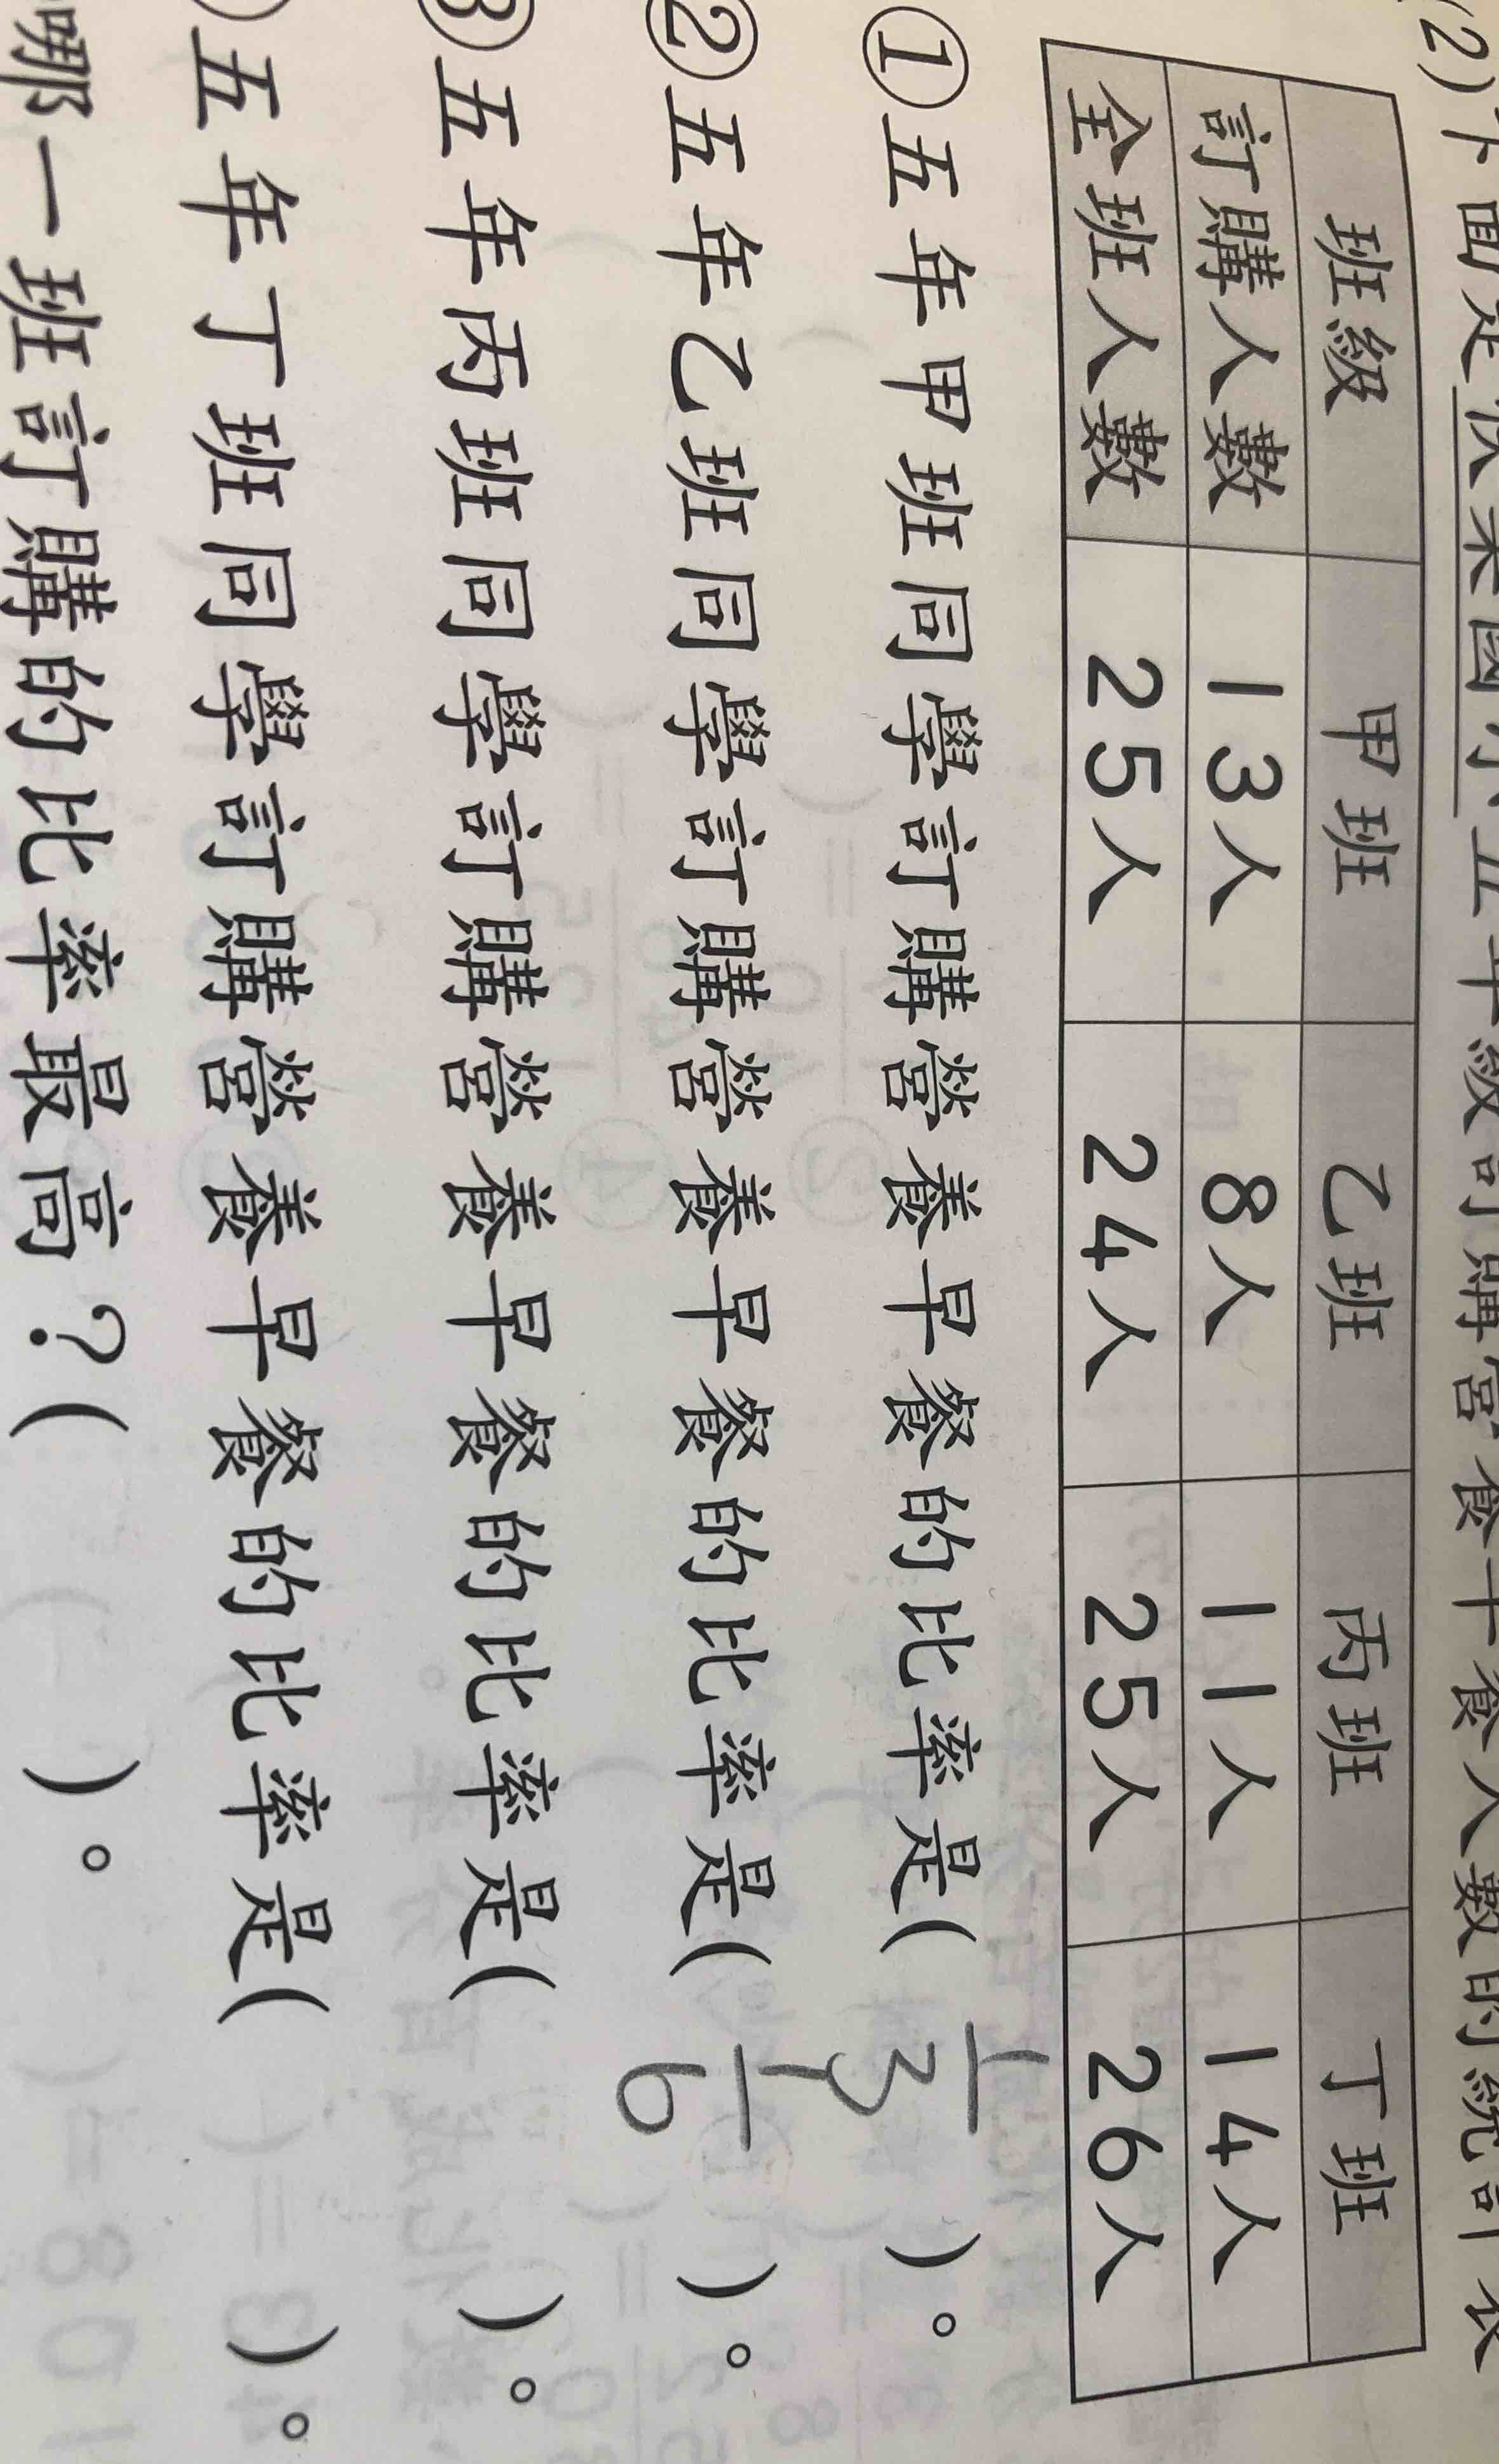 (2)下面是快樂國小五年級訂購營養早餐人數的統計表
班級 甲班 乙班 丙班 丁班
訂購人數 13人 8人 11人 14人
全班人數 25人 24人 25人 26人
①五年甲班同學訂購營養早餐的比率是( 1/3 )。
②五年乙班同學訂購營養早餐的比率是( 1/6 )。
③五年丙班同學訂購營養早餐的比率是( )。
五年丁班同學訂購營養早餐的比率是( )。
哪一班訂購的比率最高?( )。